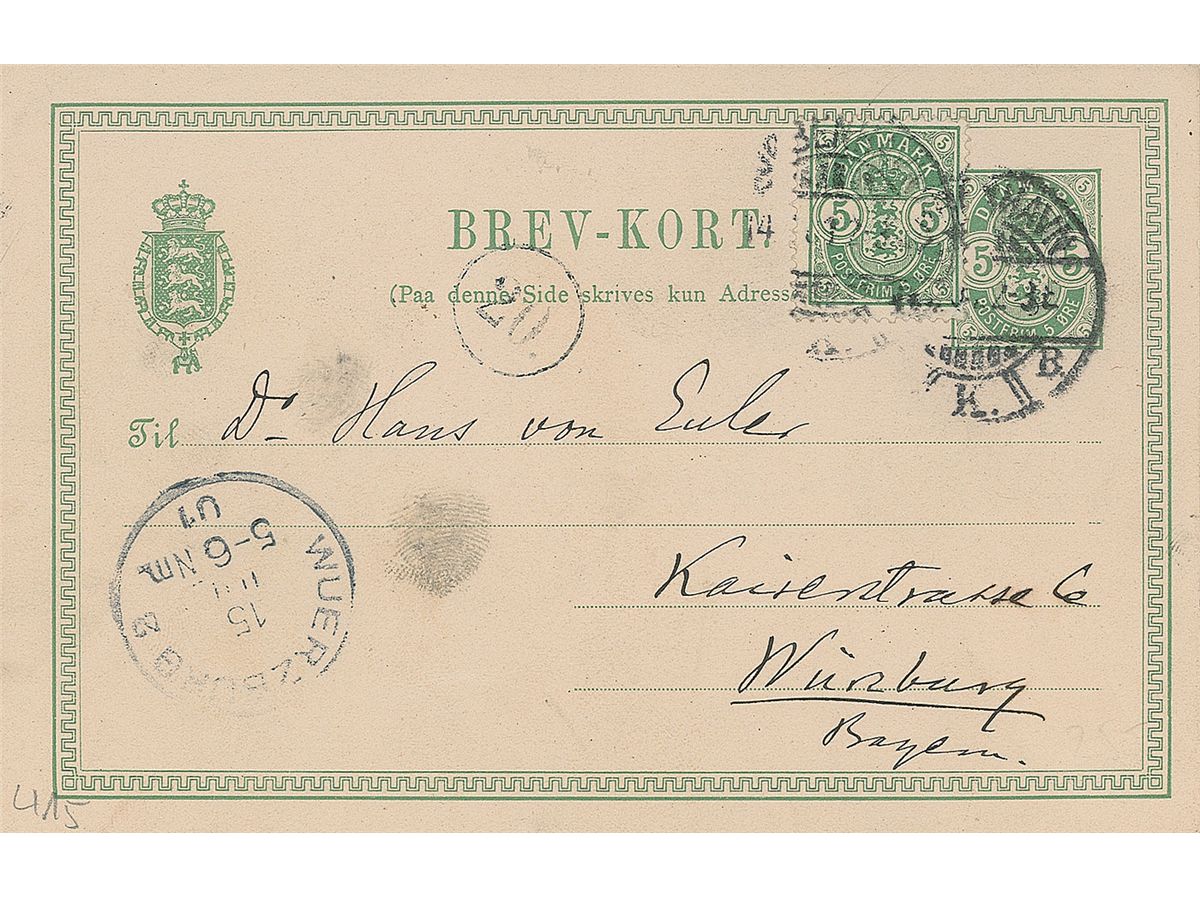 BREV-KORT.
(Paa denne Side skrives kun Adress
DANMARK
5 5
POSTFRIM. 5 ØRE
5 5
POSTFRIM. 5 ØRE
14
K. B.
20.
Til Dr Hans von Euler
Kaiserstrasse 6
Würzburg
Bayern.
WUERZBURG 2
15
5-6 Nm
01
4/15